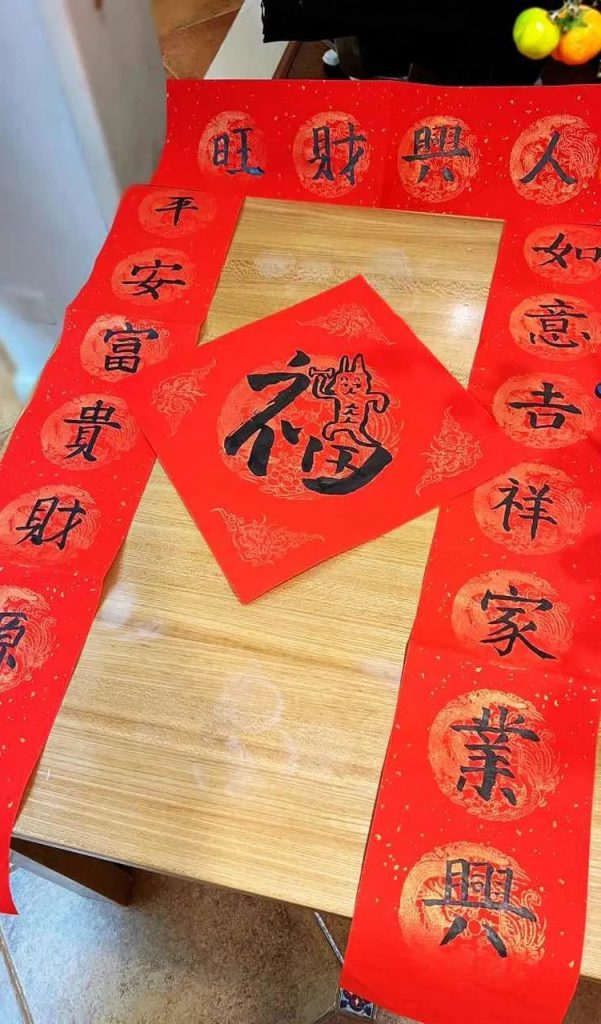 人興財旺
如意吉祥家業興
平安富貴財源
福